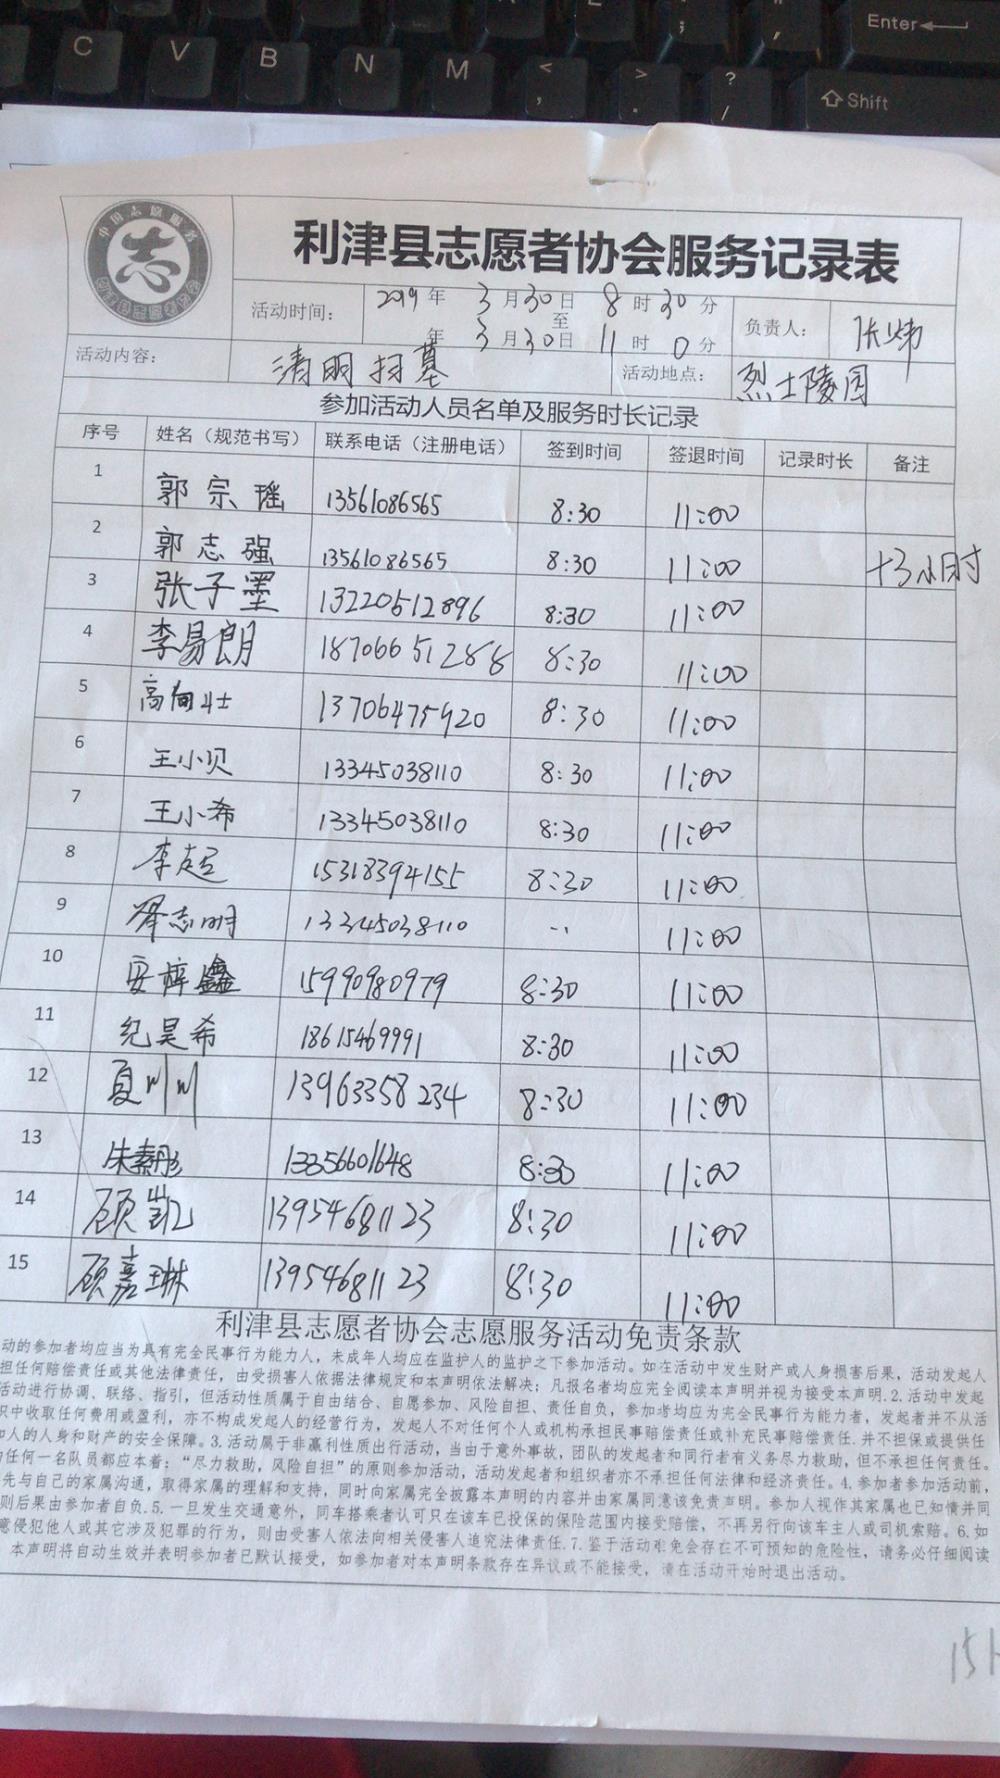 Enter
C V B N M < , > . ? /
Shift
中国志愿服务
志
利津县志愿者协会服务记录表
活动时间： 2019年 3月30日 8时30分
至
年 3月30日 11时0分
负责人： 张炜
活动内容： 清明扫墓 活动地点： 烈士陵园
参加活动人员名单及服务时长记录
序号 姓名（规范书写） 联系电话（注册电话） 签到时间 签退时间 记录时长 备注
1 郭宗瑶 13561086565 8:30 11:00
2 郭志强 13561086565 8:30 11:00 +3小时
3 张子墨 13220512896 8:30 11:00
4 李易朗 18706651288 8:30 11:00
5 高 13706475920 8:30 11:00
6 王小贝 13345038110 8:30 11:00
7 王小希 13345038110 8:30 11:00
8 李 15318394155 8:30 11:00
9 志明 13345038110 11:00
10 安梓鑫 15990980979 8:30 11:00
11 纪昊希 18615469991 8:30 11:00
12 夏川川 13963358234 8:30 11:00
13 朱 13356601648 8:30 11:00
14 顾凯 13954681123 8:30 11:00
15 顾嘉琳 13954681123 8:30 11:00
利津县志愿者协会志愿服务活动免责条款
动的参加者均应当为具有完全民事行为能力人，未成年人均应在监护人的监护之下参加活动。如在活动中发生财产或人身损害后果，活动发起人
担任何赔偿责任或其他法律责任，由受损害人依据法律规定和本声明依法解决；凡报名者均应完全阅读本声明并视为接受本声明.2.活动中发起
活动进行协调、联络、指引，但活动性质属于自由结合、自愿参加、风险自担、责任自负，参加者均应为完全民事行为能力者，发起者并不从活
织中收取任何费用或盈利，亦不构成发起人的经营行为，发起人不对任何个人或机构承担民事赔偿责任或补充民事赔偿责任.并不担保或提供任
加人的人身和财产的安全保障。3.活动属于非赢利性质出行活动，当由于意外事故，团队的发起者和同行者有义务尽力救助，但不承担任何责任。
任何一名队员都应本着：“尽力救助，风险自担”的原则参加活动，活动发起者和组织者亦不承担任何法律和经济责任。4.参加者参加活动前，
先与自己的家属沟通，取得家属的理解和支持，同时向家属完全披露本声明的内容并由家属同意该免责声明。参加人视作其家属也已知情并同
则后果由参加者自负.5.一旦发生交通意外，同车搭乘者认可只在该车已投保的保险范围内接受赔偿，不再另行向该车主人或司机索赔。6.如
意侵犯他人或其它涉及犯罪的行为，则由受害人依法向相关侵害人追究法律责任。7.鉴于活动难免会存在不可预知的危险性，请务必仔细阅读
本声明将自动生效并表明参加者已默认接受，如参加者对本声明条款存在异议或不能接受，请在活动开始时退出活动。
15